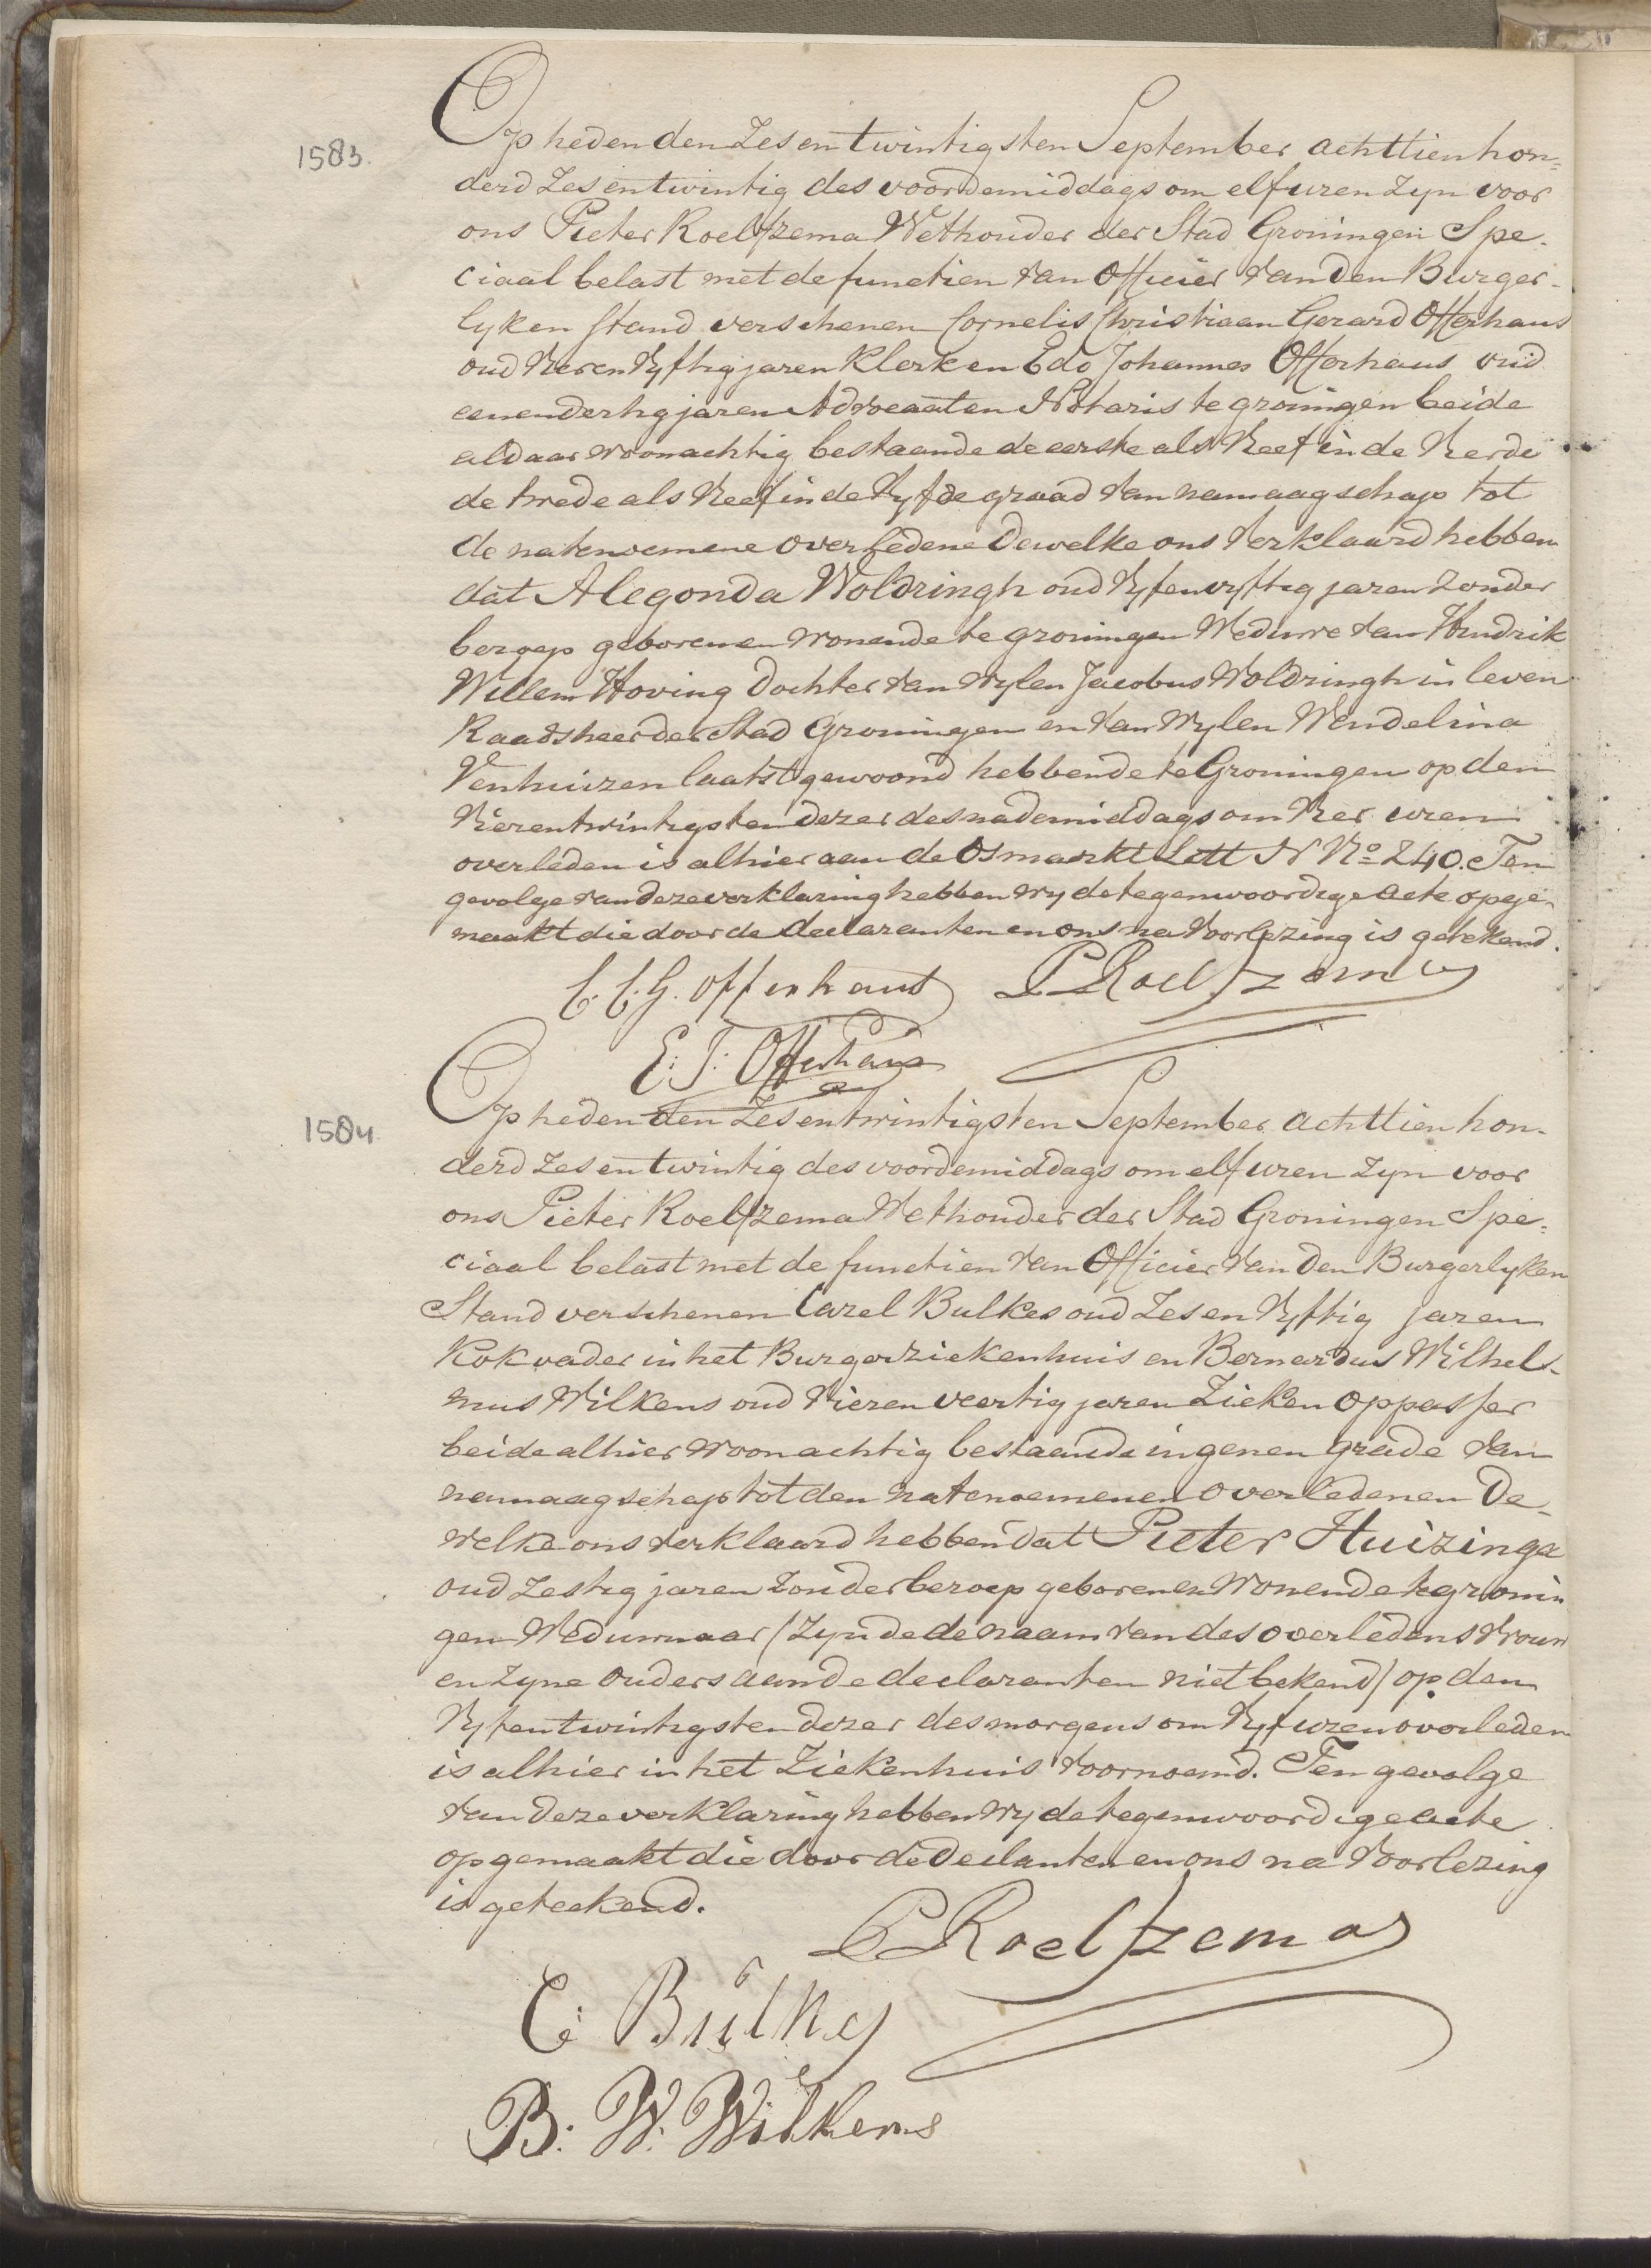 1583.
Op heden den Zes en twintigsten September achttien hon=
derd Zes en twintig des voordemiddags om elf uren zyn voor
ons Pieter Roelfzema Wethouder der Stad Groningen Spe-
ciaal belast met de functien van Officier van den Burger-
lyken Stand verschenen Cornelis Christiaan Gerard Offerhaus
oud Vier en Vyftig jaren Klerk en Edo Johannes Offerhaus oud
een en dertig jaren Advocaat en Notaris te groningen beide
aldaar woonachtig bestaande de eerste als Neef in de Vierde
de twede als Neef in de Vyfde graad van namaagschap tot
de natenoemene overledene Dewelke ons Verklaard hebben
dat Alegonda Woldringh oud Vyf en vyftig jaren zonder
beroep geboren en wonende te groningen Weduwe van Hindrik
Willem Hoving Dochter van Wylen Jacobus Woldringh in leven
Raadsheer der Stad Groningen en van Wylen Wendelina
Venhuizen laatst gewoond hebbende te Groningen op den
Vier en twintigsten dezer des nademiddags om Vier uren
overleden is alhier aan de Osmarkt Lett N No 240. Ten
gevolge van deze verklaring hebben wy de tegenwoordige acte opge-
maakt die door de declaranten en ons na Voorlezing is getekend.
C. C. G. Offerhaus P Roelfzema
E: J: Offerhaus
1584
Op heden den Zes en twintigsten September achttien hon-
derd Zes en twintig des voordemiddags om elf uren zyn voor
ons Pieter Roelfzema Wethouder der Stad Groningen Spe=
ciaal belast met de functien van Officier van den Burgerlyken
Stand verschenen Carel Bulkes oud Zes en Vyftig jaren
Kokvader in het Burgerziekenhuis en Bernardus Wilhel-
mus Wilkens oud Vier en veertig jaren Zieken oppasser
beide alhier woonachtig bestaande in genen grade van
namaagschap tot den natenoemenen overledenen De-
welke ons verklaard hebben dat Pieter Huizinga
oud Zestig jaren zonder beroep geboren en Wonende te gronin
gen Weduwnaar (zynde de naam van des overledens Vrouw
en zyne ouders aan de declaranten niet bekend) op den
Vyf en twintigsten dezer des morgens om Vyf uren overleden
is alhier in het Ziekenhuis Voornoemd. Ten gevolge
van deze verklaring hebben Wy de tegenwoordige acte
opgemaakt die door de Declanten en ons na Voorlezing
is geteekend.
P Roelfzema
C: Bulkes
B: W: Wilkens